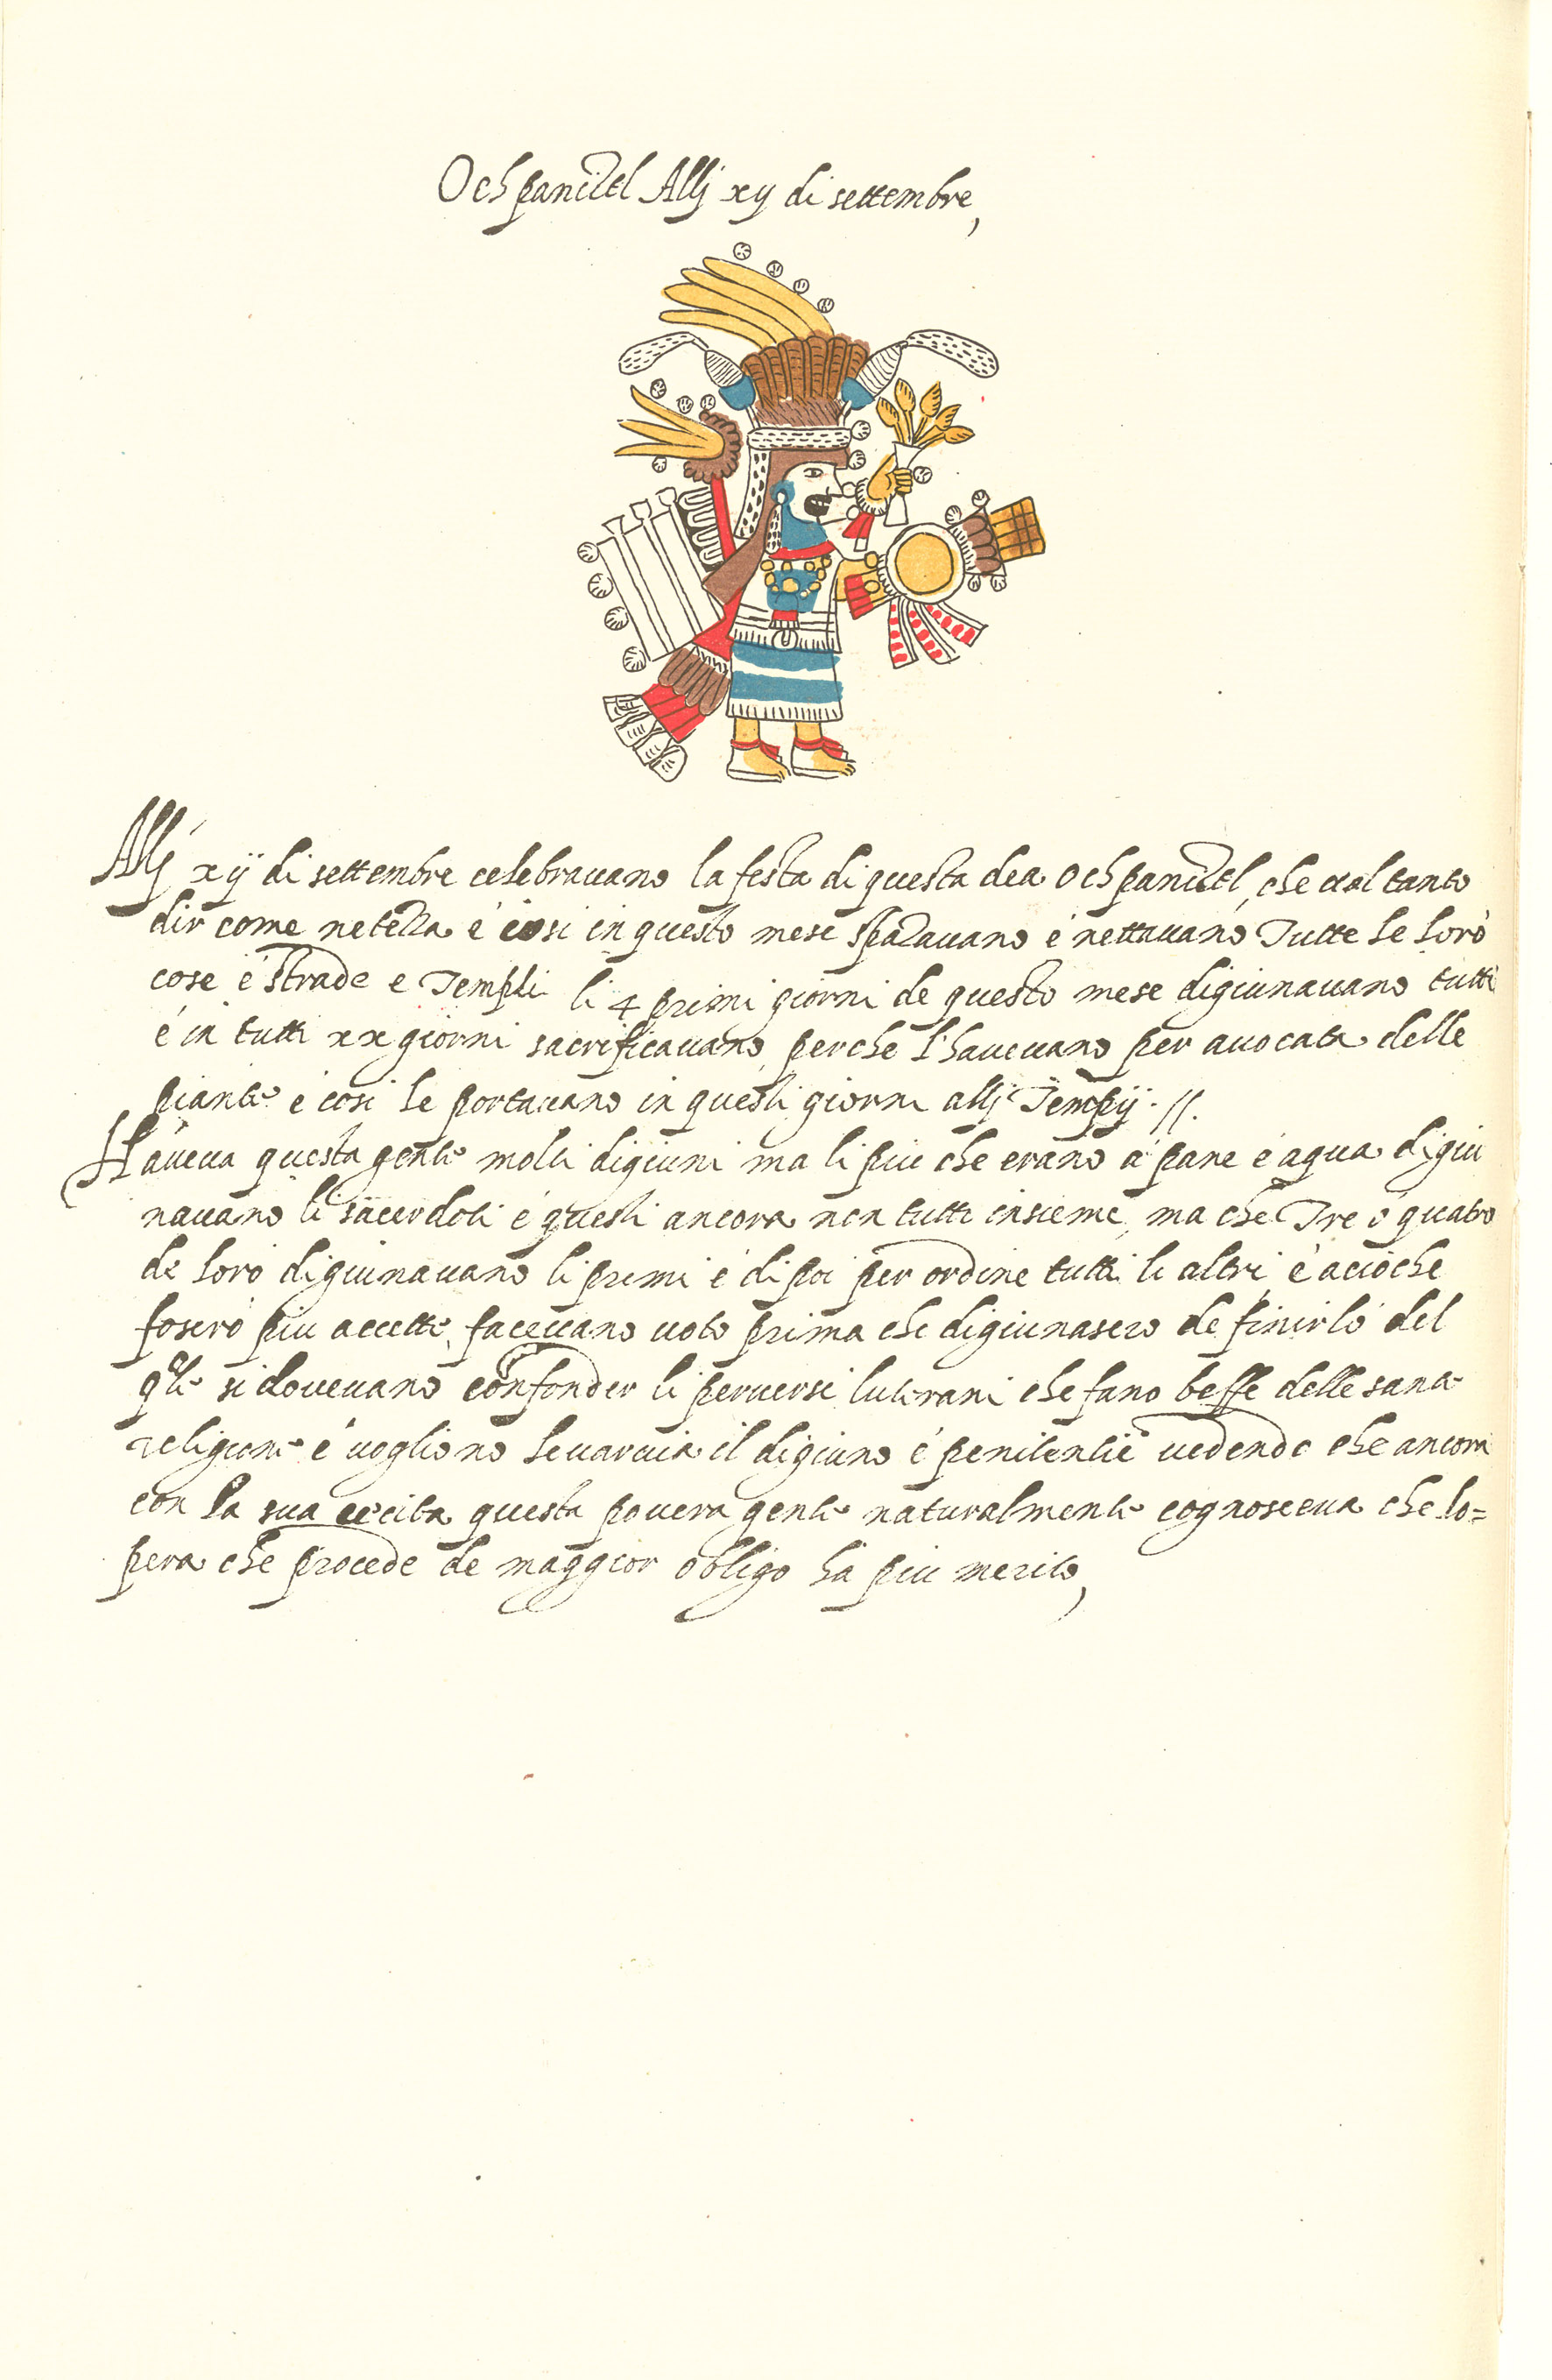 Ochpaniztl Allj xij di settembre,
Allj xij di settembre celebravano la festa di questa dea Ochpaniztl, che val tanto
dir come netezza é cosi in questo mese spazavano é nettavano Tutte le loro
cose é strade e Templi li 4 primi giorni de questo mese digiunavano tutti
é in tutti xx giorni sacrificavano, perche l'havevano per avocata delle
piante é cosi le portavano in questi giorni allj Tempij. //.
Haveva questa gente molti digiuni ma li piu che erano á pane é aqua digiu
navano li sacerdoti é questi ancora non tutti insieme, ma che Tre ó quatro
de loro digiunavano li primi é di poi per ordine tutti li altri é acioche
fosero piu accette, facevano voto prima che digiunasero de finirlo del
qle si dovevano confonder li perversi luterani che fano beffe delle sana
religione é vogliono levar via il digiuno é penitentie vedendo che ancora
con la sua cecita questa povera gente naturalmente cognosceva che lo=
pera che procede de maggior obligo há piu merito,